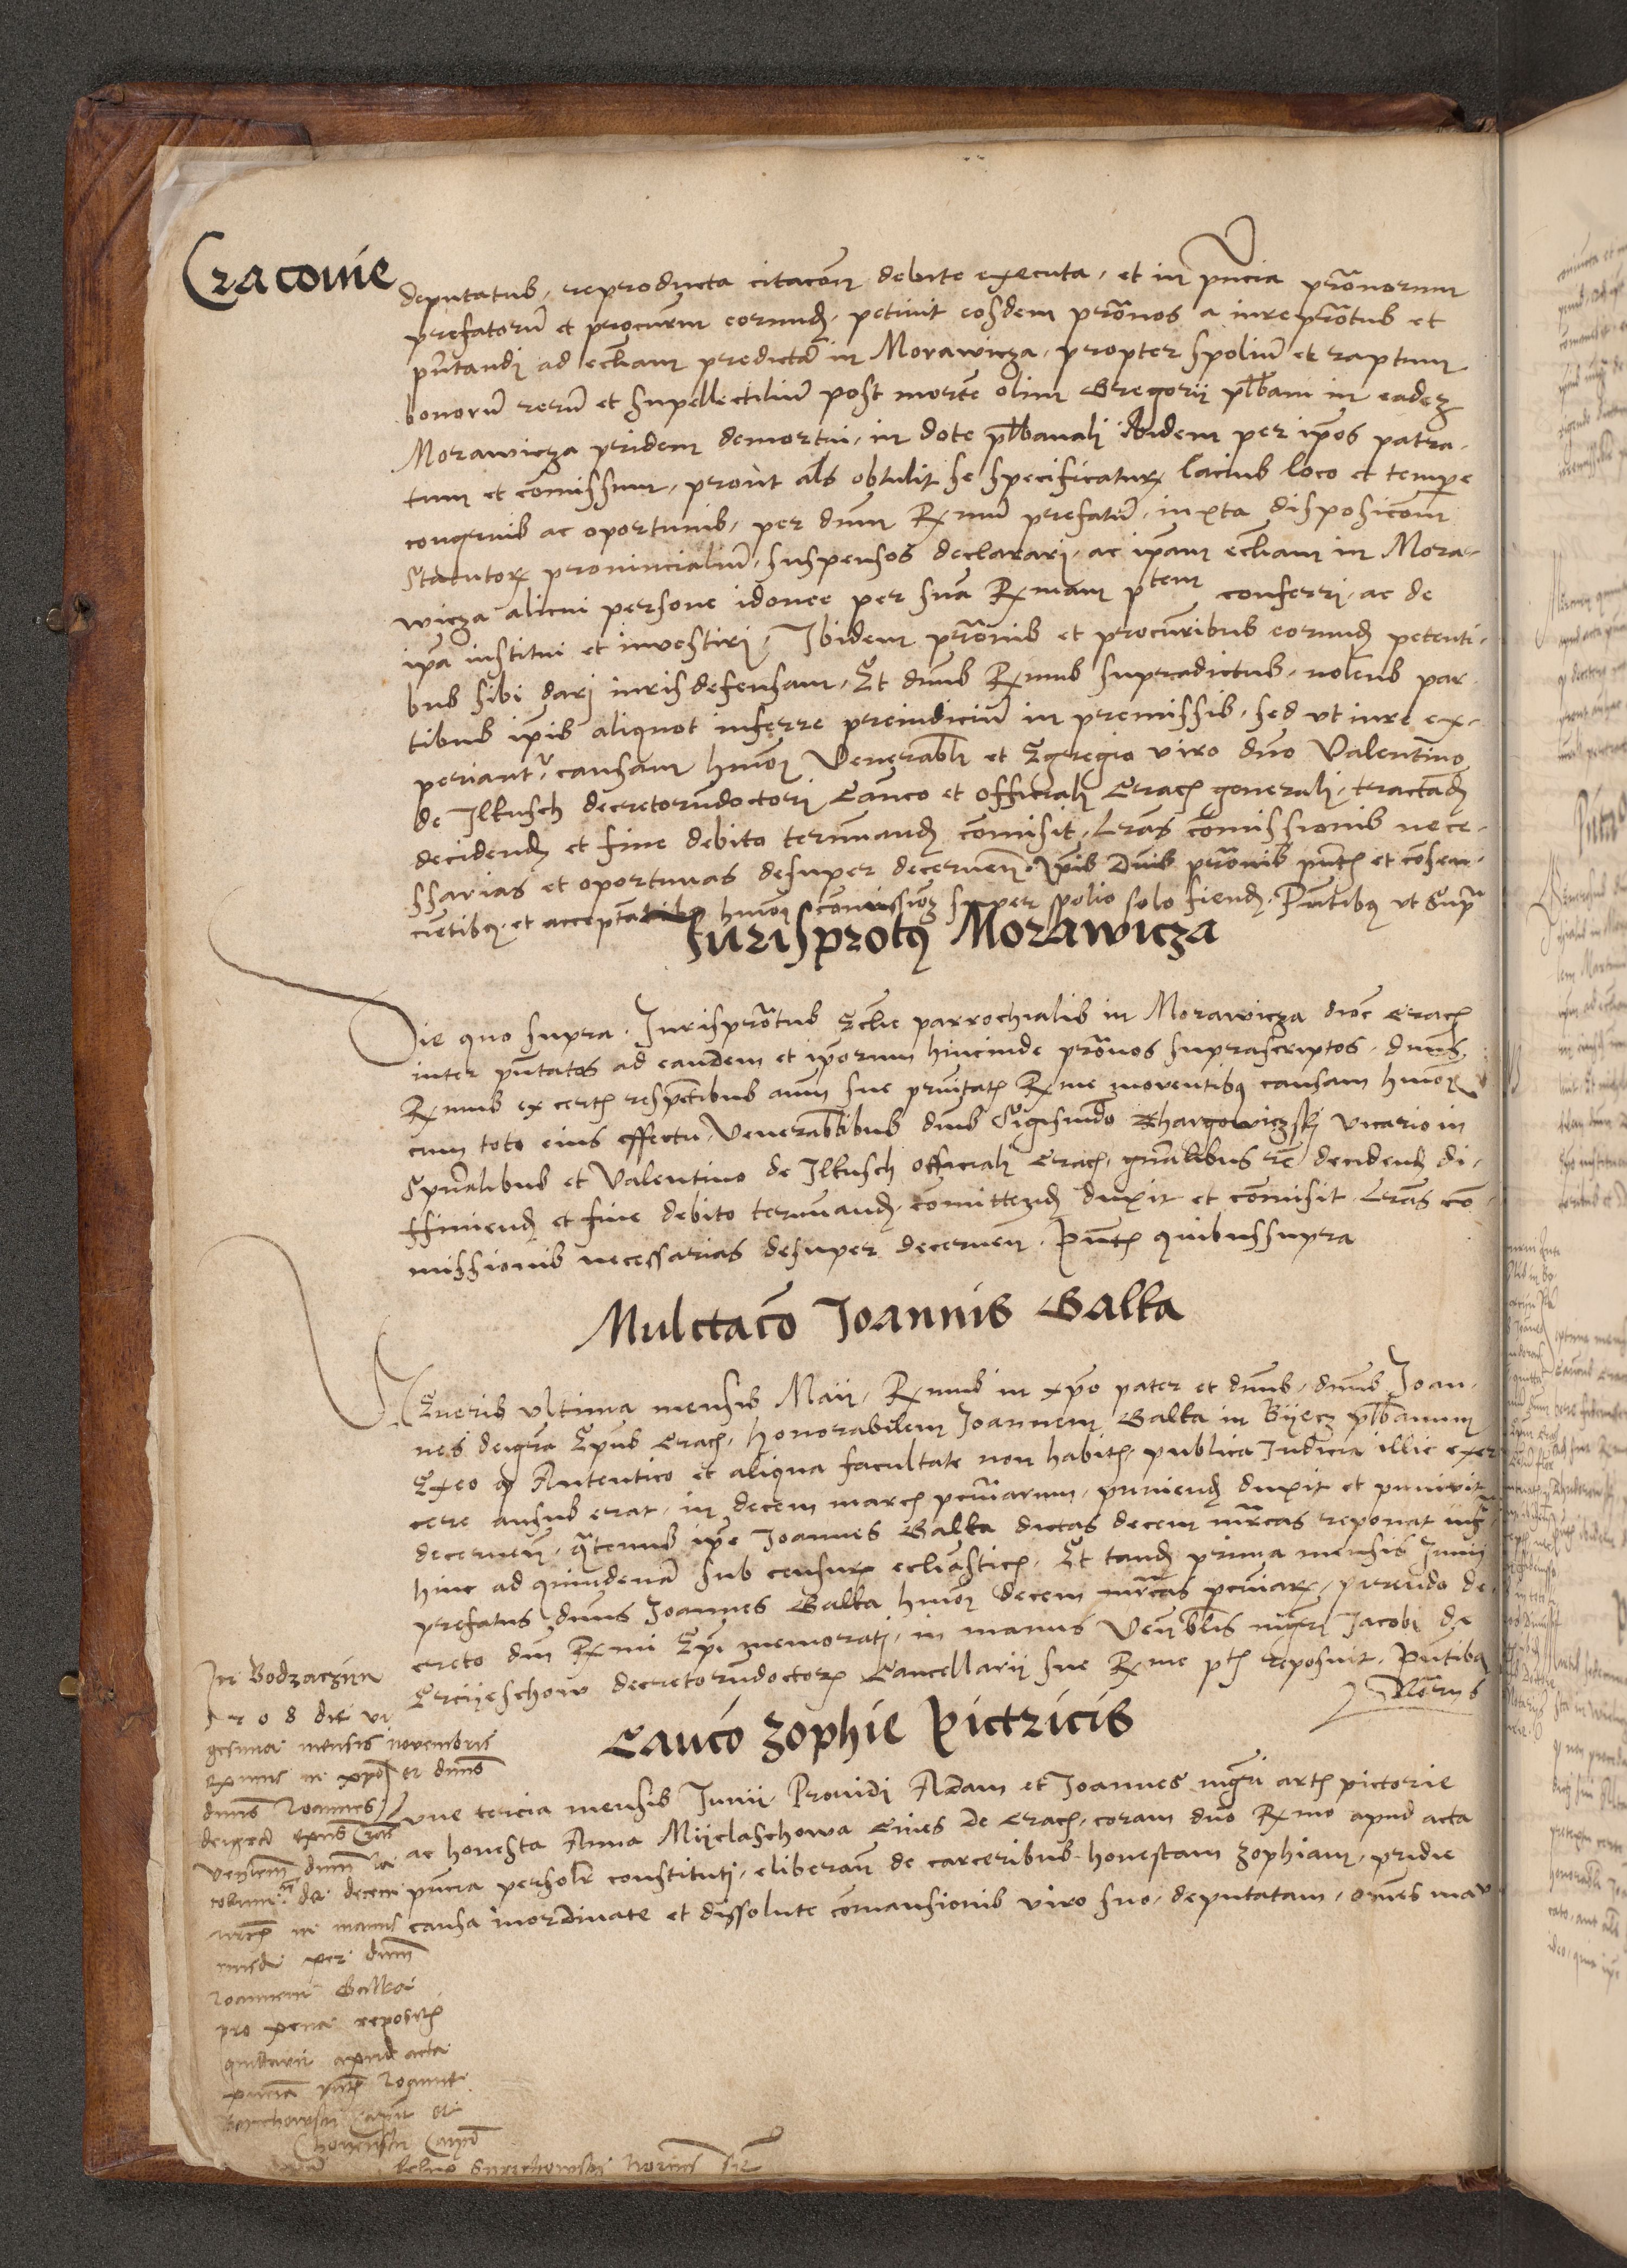 Cracovie
deputatus, reproducta citacōn debite executa, et in pn̄cia prōnorum
prefatorū et procurm̄ eorund, petivit eosdem prōnos a iureprōtus et
pn̄tandi ad ecl̄iam predictā in Morawicza, propter spoliū et raptum
bonorū rerū et supellectiliū post mortē olim Gregorij pl̄bani in eadez
Morawicza pridem demortui, in dote pl̄banali ibidem per ip̄os patra-
tum et cōmissum, prout al̄s obtulit se specificatur lacius loco et tempe
congruis ac oportunis, per dnm̄ Rmū prefatū, iuxta disposicōm
Statutor provincialiū, suspensos declarari, ac ip̄am ecl̄iam in Mora-
wicza alicui persone idonee per suā Rmam ptem conferri, ac de
ip̄a institui et investiri, Ibidem prōnis et procuribus eorund petenti-
bus sibi dari iuris defensam, Et dn̄us Rmus supradictus, nolens par
tibus ip̄is aliquot inferre preiudiciū in premissis, sed ut iure ex-
periant, causam hmōi Venerabl̄i et Egregio viro dn̄o Valentino
de Ilkusch decretorūdoctori Canco et officiali Crac generali, tractand
decidend et fine debito termīnand cōmisit, Lrās cōmissionis nece-
ssarias et oportunas desuper decernen̄. Ip̄is Dn̄is prōnis pn̄t et cōsen-
cientibq, et acceptantibus hmōi cōmissioz super spolio solo fiend. Pn̄tibq ut supra
Jurisprotq Morawicza
Die quo supra. Jurisprōtus Eccl̄ie parrochialis in Morawicza dioc̄ Crac
inter pn̄tatos ad eandem et ip̄orum hincinde prōnos suprascriptos. dn̄us
Rmus ex cert respectibus aīum sue prn̄itat Rme moventibq causam hmōi
cum toto eius effectu, Venerabl̄ibus dn̄is Sigismūdo Khargowiczskj vicario in
Sprn̄alibus et Valentino de Ilkusch officiali Crac, gn̄alibus rē decidend di-
ffiniend et fine debito termīnand, cōmittend duxit et cōmisit Lrās cō-
missionis necessarias desuper decernen̄. Pn̄t quibussupra
Mulctacō Joannis Galka
Veneris ultima mensis Maij, Rmus in xp̄o pater et dn̄us, dn̄us Joan-
nes deigrā Ep̄us Crac, honorabilem Joannem Galka in Bijecz pl̄banum
Exeo q Autentico et aliqua facultate non habit, publica Iudicia illic exer
cere ausus erat, in decem marc pecūiarum, puniend duxit et punivit
decernen̄, q̄tenus ip̄e Joannes Galka dictas decem mr̄cas reponat infr̄
hinc ad quindenā sub censur ecl̄iastic. Et tand prima mensis Junij
prefatus dn̄us Joannes Galka hmōi decem mr̄cas pecūiar, parendo de-
creto dn̄i Rmi Ep̄i memorati, in manus Ven̄bl̄is mg̃ri Jacobi de
Ercijeschow decretorūdoctor Cancellarij sue Rme pt reposuit. Pn̄tibq
Nōrijs
Caucō Zophie Pictricis
Lune tercia mensis Junij. Providi Adam et Joannes mg̃ri art pictorie
ac honesta Anna Mijclaschowa Cives de Crac, coram dn̄o Rmo apud acta
pn̄cia persolr̄ constituti, eliberarū de carceribus honestam Zophiam, pridie
causa inordinate et dissolute cōmansionis viro suo, deputatam, om̄es ma
In Bodzaczin
die vi
gesima mensis novembris
Rmus in xpō et dn̄us
dn̄us Joannes
deigrā epus Crac
de decem
in manus
per dnm̄
Joannem Galka
pro pena reposit
quittavit apud acta